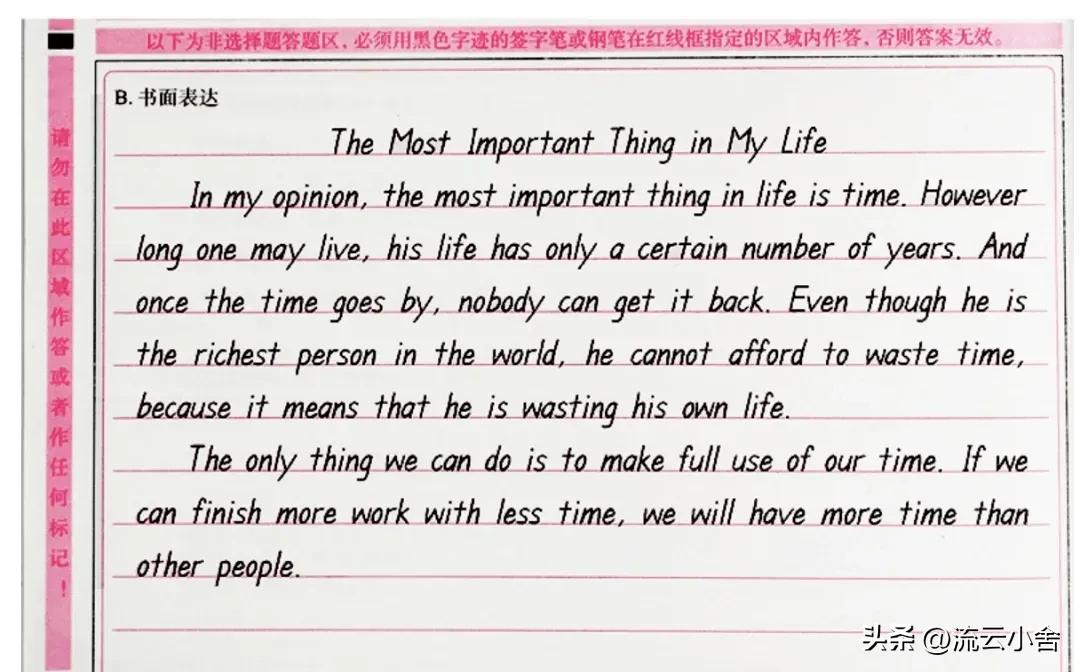 以下为非选择题答题区，必须用黑色字迹的签字笔或钢笔在红线框指定的区域内作答，否则答案无效。
请勿在此区域作答或者作任何标记！
B. 书面表达
The Most Important Thing in My Life
In my opinion, the most important thing in life is time. However
long one may live, his life has only a certain number of years. And
once the time goes by, nobody can get it back. Even though he is
the richest person in the world, he cannot afford to waste time,
because it means that he is wasting his own life.
The only thing we can do is to make full use of our time. If we
can finish more work with less time, we will have more time than
other people.
头条 @流云小舍